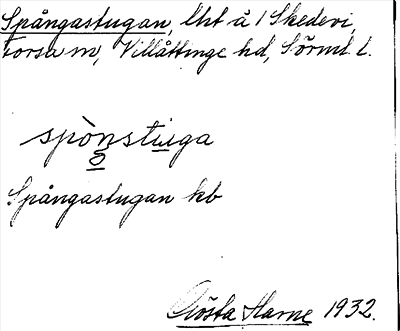 Spångastugan, lht å 1 Skedevi,
Torsa sn, Villåttinge hd, Sörml. l.
spònstuga
Spångastugan kb
Gösta Harne 1932.